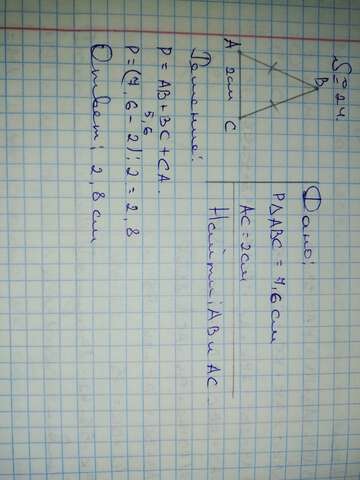 № 24.
B
A
2см
C
Дано:
P∆ABC = 7,6 см
AC = 2см
Найти: AB и AC.
Решение:
P = AB + BC + CA.
5,6
P = (7,6 - 2) : 2 = 2,8
Ответ: 2,8 см